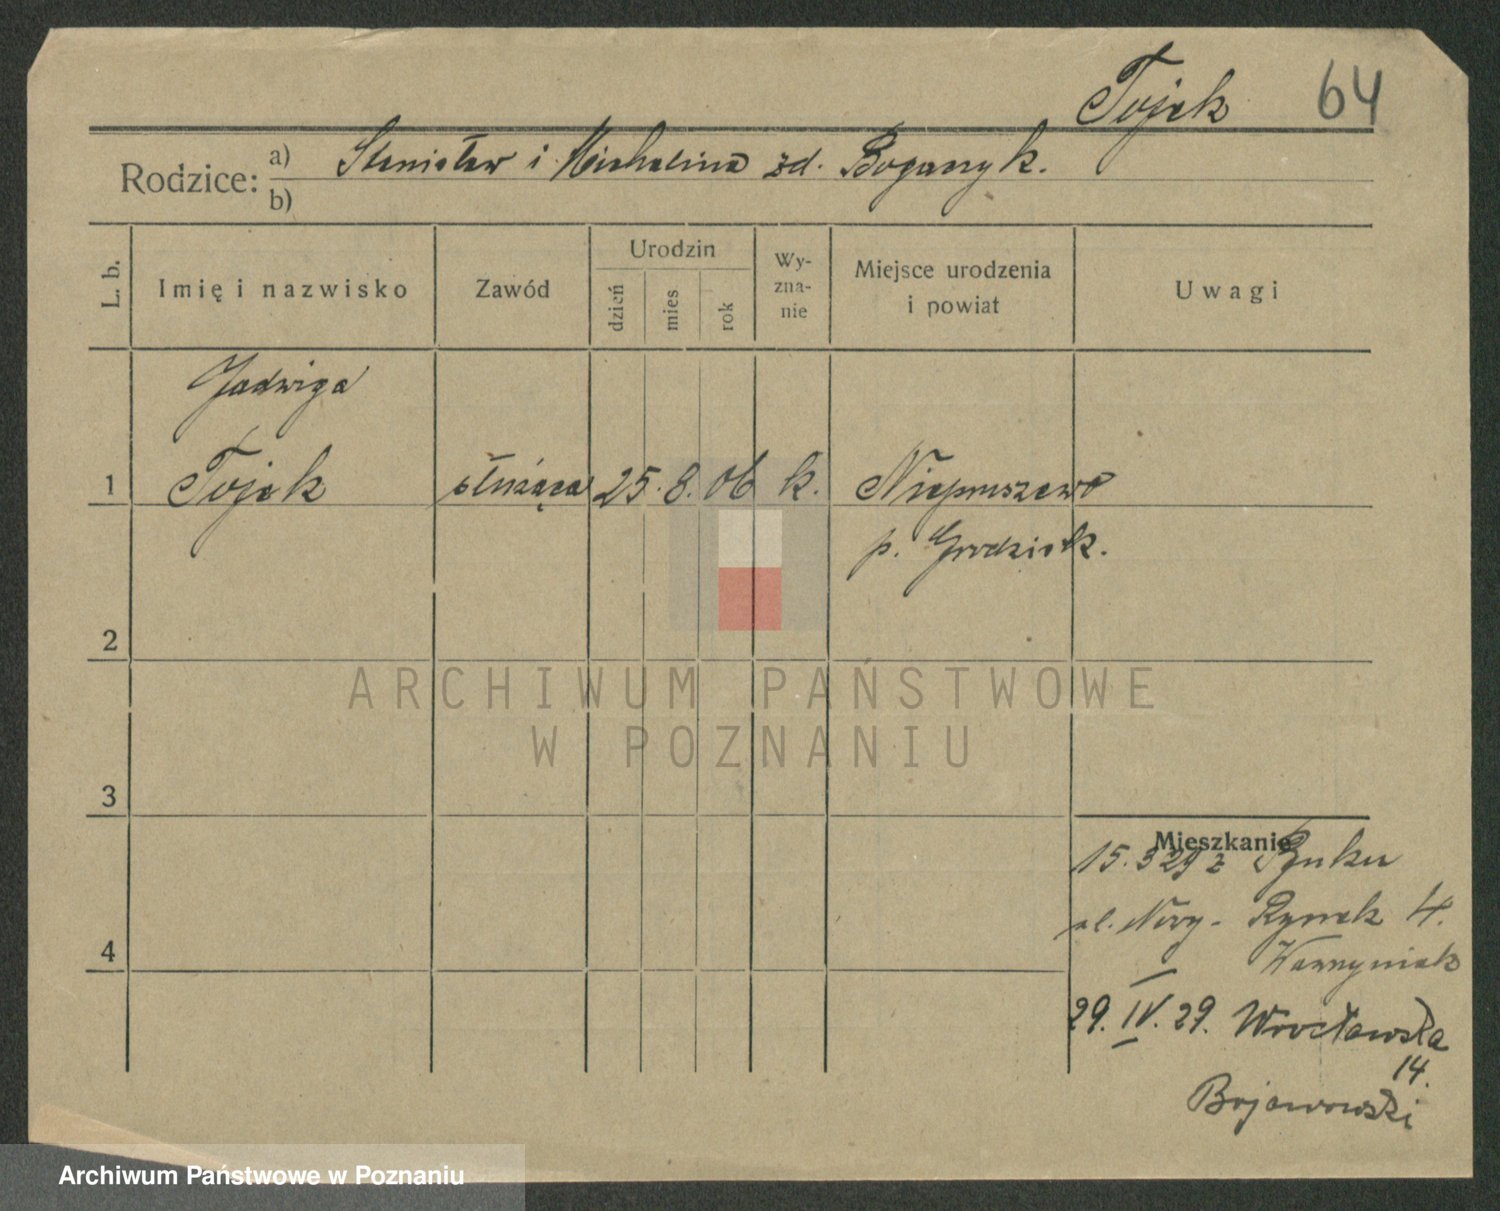 Tojek 64
Rodzice: a) Stanisław i Michalina zd. Bogaczyk.
b)
L. b. Imię i nazwisko Zawód Urodzin dzień mies rok Wy-zna-nie Miejsce urodzenia i powiat Uwagi
Jadwiga
1 Tojek służąca 25. 8. 06 k. Niepruszewo
p. Grodzisk.
2
ARCHIWUM PAŃSTWOWE
W POZNANIU
3
Mieszkanie
15. 3 29 z Buku
ul. Nowy - Rynek 4.
Wawrzyniak
4
29. IV. 29. Wrocławska
14.
Bojanowski
Archiwum Państwowe w Poznaniu